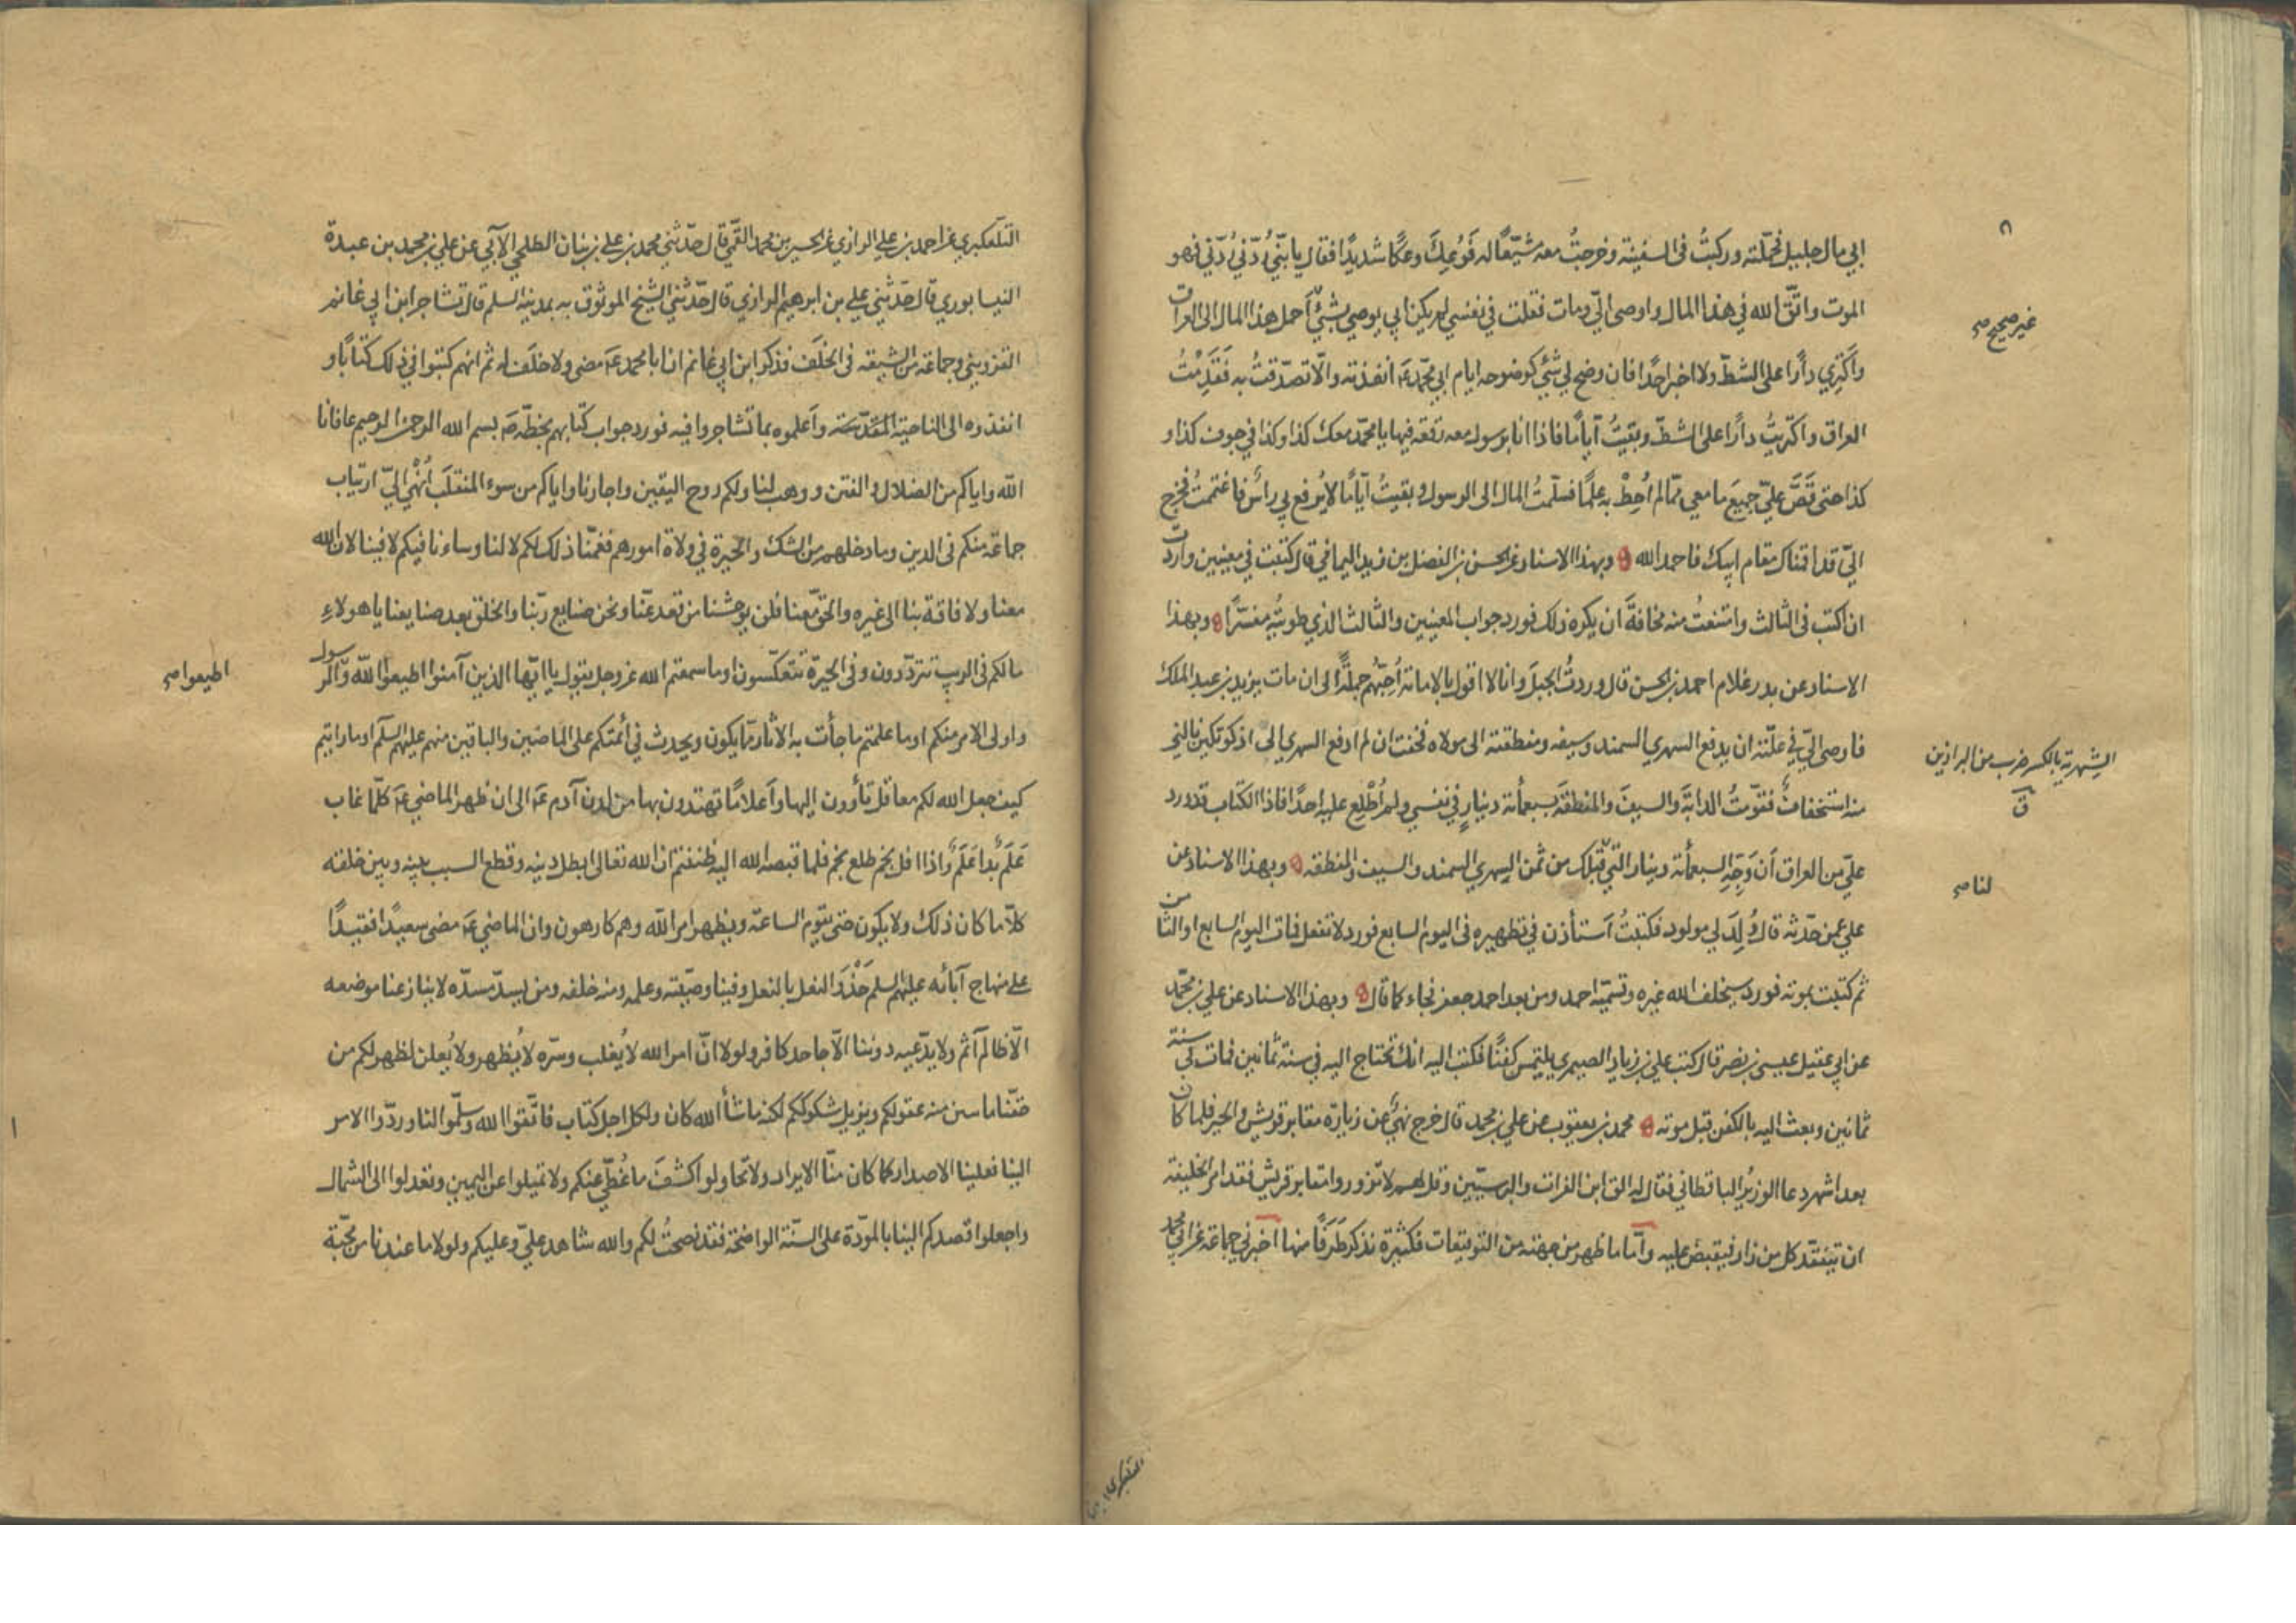 ابي مال جليل فحملته وركبتُ في السفينة وخرجتُ معه مُشيّعًا له فَوُعِكَ وعكًا شديدًا فقال يا بنيّ رُدّني رُدّني فهو
الموت واتّق الله في هذا المال واوصى اليّ ومات فقلت في نفسي لم يكن ابي يوصي بشئ أحمل هذا المال الى العراق
غير صحيح صح
وأكتري دارًا على الشطّ ولا اخبر احدًا فان وضح لي شئ كوضوحه ايام ابي محمّد عَ انفذته والّا تصدّقتُ به فَقَدِمْتُ
العراق واكتريتُ دارًا على الشطّ وبقيتُ أيامًا فاذا انا برسول معه رقعة فيها يا محمّد معك كذا وكذا في جوف كذا و
كذا حتى قَصَّ عليّ جميعَ ما معي ممّا لم أحِطْ به علمًا فسلّمتُ المال الى الرسول وبقيتُ أيّامًا لا يُرفع بي رأس فاغتممتُ فخرج
اليّ قد اقمناك مقام ابيك فاحمد الله وبهذا الاسناد عن الحسن بن الفضل بن زيد اليماني قال كتبت في معنيين واردت
ان اكتب في الثالث وامتنعتُ منه مخافةَ ان يكره ذلك فورد جواب المعنيين والثالث الذي طويته مفسّرًا وبهذا
الاسناد عن بدر غلام احمد بن الحسن قال وردتُ الجبلَ وانا لا اقول بالامامة أحِبّهُم جملةً الى ان مات يزيد بن عبد الملك
فاوصى اليّ في علّته ان يدفع الشهري السمند وسيفه ومنطقته الى مولاه فخفت ان لم ادفع الشهري الى اذكوتكين نالني
الشِهرية بالكسر ضرب من البراذين
ق
منه استخفاف فقوّمتُ الدابةَ والسيفَ والمنطقةَ بسبعمأة دينارٍ في نفسي ولم أُطْلِع عليه احدًا فاذا الكتاب قد ورد
عليّ من العراق أن وَجِّهِ السبعمأة دينار التي قِبَلك من ثمن الشهري السمند والسيف والمنطقه وبهذا الاسناد عن
لنا صح
علي عمن حدّثه قال وُلِدَ لي مولود فكتبتُ أستأذن في تطهيره في اليوم السابع فورد لا تفعل فمات اليوم السابع او الثامن
ثم كتبت بموته فورد سيخلف الله غيره وتسمّيه احمد ومن بعد احمد جعفر فجاء كما قال وبهذا الاسناد عن علي بن محمّد
عن ابي عقيل عيسى بن نصر قال كتب علي بن زياد الصيمري يلتمس كفنًا فكتب اليه انك تحتاج اليه في سنة ثمانين فمات في سنة
ثمانين وبعث اليه بالكفن قبل موته محمد بن يعقوب عن علي بن محمد قال خرج نهيٌ عن زيارة مقابر قريش والحير فلما كان
بعد اشهر دعا الوزيرُ الباقطاني فقال له الق ابن الفرات والبرسيّين وقل لهم لا تزوروا مقابر قريش فقد امر الخليفة
ان يتفقّد كل من زار فيقبض عليه وأمّا ما ظهر من جهته من التوقيعات فكثيرة نذكر طَرَفًا منها اخبرني جماعة عن ابي محمد
التلعكبري
التلعكبري عن احمد بن علي الرازي عن الحسين بن محمد القمّي قال حدّثني محمد بن علي بن بنان الطلحي الآبي عن علي بن محمد بن عبدة
النيسابوري قال حدّثني علي بن ابرهيم الرازي قال حدّثني الشيخ الموثوق به بمدينة السلم قال تشاجر ابن ابي غانم
القزويني وجماعة من الشيعة في الخلَف فذكر ابن ابي غانم ان ابا محمد عَ مضى ولا خلَف له ثم انهم كتبوا في ذلك كتابًا و
انفذوه الى الناحية المقدّسة وأعلموه بما تشاجروا فيه فورد جواب كتابهم بخطّه عَ بسم الله الرحمن الرحيم عافانا
الله واياكم من الضلال والفتن ووهب لنا ولكم روح اليقين واجارنا واياكم من سوء المنقلَب أُنْهِيَ اليّ ارتياب
جماعة منكم في الدين وما دخلهم من الشك والحيرة في ولاة امورهم فغمّنا ذلك لكم لا لنا وساءنا فيكم لا فينا لان الله
معنا ولا فاقة بنا الى غيره والحقّ معنا فلن يوحشنا من قعد عنّا ونحن صنايع ربّنا والخلق بعد صنايعنا يا هولاءِ
ما لكم في الريب تتردّدون وفي الحيرة تتعكّسون او ما سمعتم الله عز وجل يقول يا ايّها الذين آمنوا اطيعوا الله والرسول
اطيعوا صح
واولى الامر منكم او ما علمتم ما جأت به الآثار ممّا يكون ويحدث في أئمّتكم على الماضين والباقين منهم عليهم السلم او ما رايتم
كيف جعل الله لكم معاقل تأوون اليها وأعلامًا تهتدون بها من لدن آدم عَ الى ان ظهر الماضي عَ كلّما غاب
عَلَم بَدا عَلَم واذا افل نجم طلع نجم فلما قبضه الله اليه ظننتم ان الله تعالى ابطل دينه وقطع السبب بينه وبين خلقه
كلّا ما كان ذلك ولا يكون حتى تقوم الساعة ويظهر امر الله وهم كارهون وان الماضي عَ مضى سعيدًا فقيدًا
على منهاج آبائه عليهم السلم حَذْوَ النعل بالنعل وفينا وصيّته وعلمه ومنه خلفه ومن يسدّ مسدّه لا ينازعنا موضعه
الّا ظالم آثم ولا يدّعيه دوننا الّا جاحد كافر ولولا انّ امر الله لا يُغلب وسرّه لا يُظهر ولا يُعلن لظهر لكم من
حقّنا ما سن منه عقولكم ويزيل شكوككم لكنه ما شأ الله كان ولكل اجل كتاب فاتّقوا الله وسلّموا لنا وردّوا الامر
الينا فعلينا الاصدار كما كان منّا الايراد ولا تحاولوا كشفَ ما غُطّي عنكم ولا تميلوا عن اليمين وتعدلوا الى الشمال
واجعلوا قصدكم الينا بالمودّة على السنّة الواضحة فقد نصحتُ لكم والله شاهد عليّ وعليكم ولولا ما عندنا من محبّة